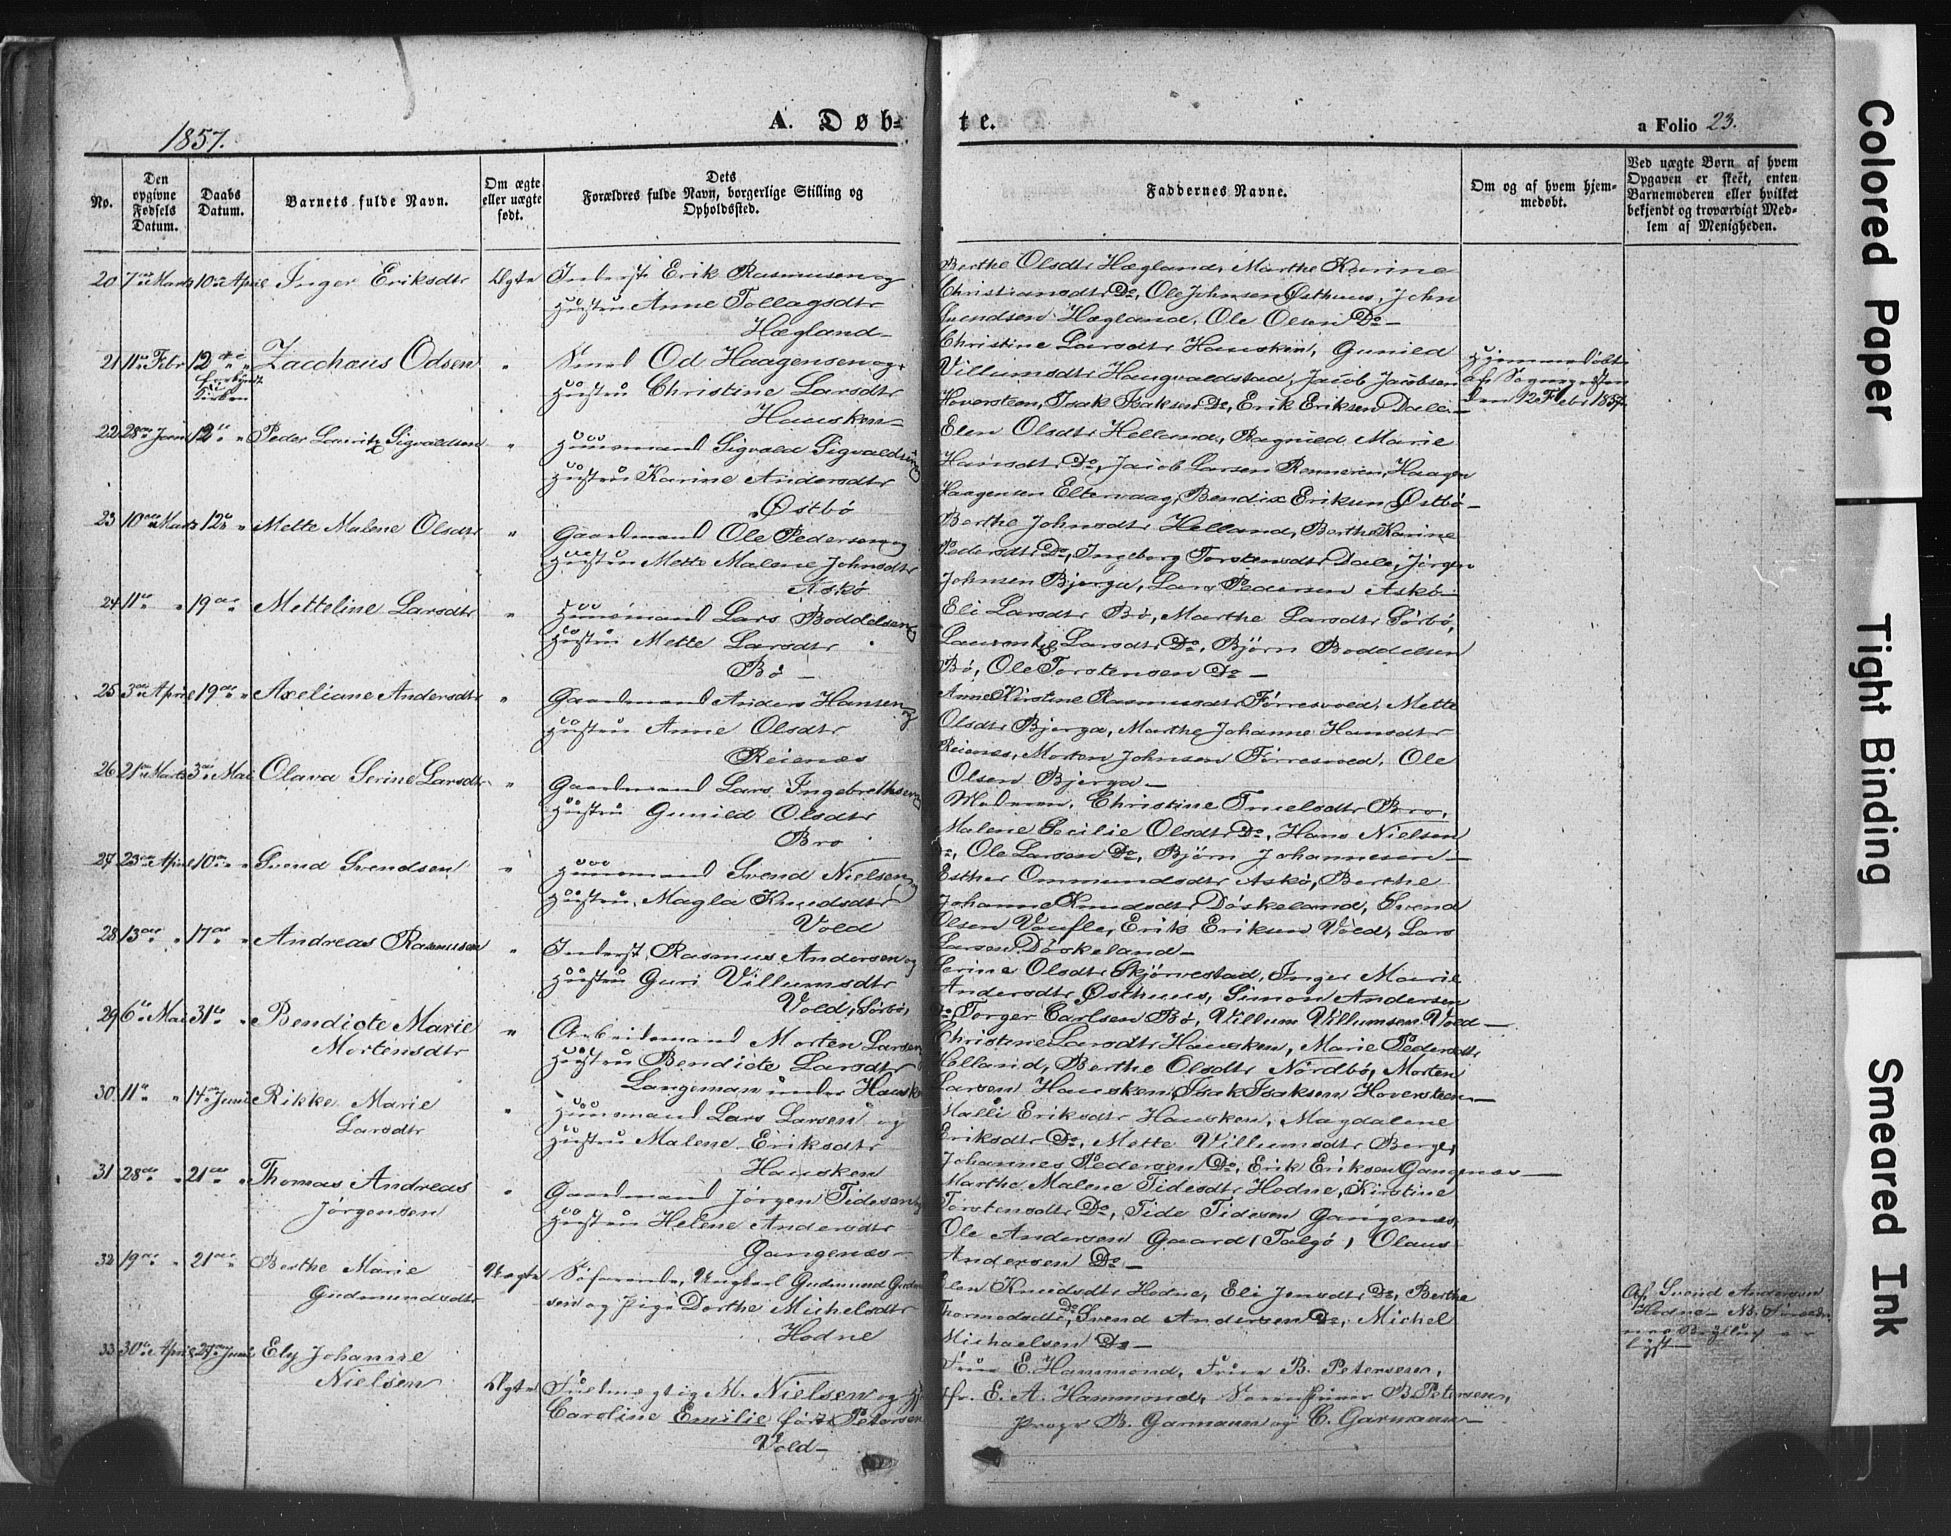 1857.
A. Døb-
te.
a Folio 23.
No.
Den opgivne Fødsels Datum.
Daabs Datum.
Barnets fulde Navn.
Om ægte eller uægte født.
Dets Forældres fulde Navn, borgerlige Stilling og Opholdssted.
Faddernes Navne.
Om og af hvem hjemmedøbt.
Ved uægte Børn af hvem Opgaven er skeet, enten Barnemoderen eller hvilket bekjendt og troværdigt Medlem af Menigheden.
20 7de Marts 10de April Inger Eriksdtr Ægte Inderst Erik Rasmusen og
Hustru Anne Tollagsdtr
Hægland
Berthe Olsdtr Hægland, Marthe Karine
Christiansdtr Do, Ole Johnsen Østhuus, John
Svendsen Hægland, Ole Olsen Do
21 11te Febr 12te " Zacchæus Odsen " Smed Od Haagensen og
Hustru Christine Larsdtr
Hausken
Christine Larsdtr Hausken, Gunild
Villumsdtr Haugvaldstad, Jacob Jacobsen
Hoversteen, Isak Isaksen Do, Erik Eriksen Dale
Hjemmedøbt
af Sognepresten
den 12 Febr 1857
22 28de Janu 12te " Peder Lauritz Sigvaldsen " Huusmand Sigvald Sigvaldsen og
Hustru Karine Andersdtr
Østbø
Elen Olsdtr Helland, Ragnild Marie
Hansdtr Do, Jacob Larsen Renneren, Haagen
Haagensen Eltervaag, Bendix Eriksen Østbø
23 10de Marts 12te " Mette Malene Olsdtr " Gaardmand Ole Pedersen og
Hustru Mette Malene Johnsdtr
Askø
Berthe Johnsdtr Helland, Berthe Karine
Pedersdtr Do, Ingeborg Torstensdtr Dale, Jørgen
Johnsen Bjerga, Lars Pedersen Askø
24 11te " 19de " Metteline Larsdtr " Huusmand Lars Boddelsen og
Hustru Mette Larsdtr
Bø
Eli Larsdtr Bø, Marthe Larsdtr Sørbø,
Larsdtr Do, Bjørn Boddelsen
Bø, Ole Torstensen Do
25 3die April 19de " Axeliane Andersdtr " Gaardmand Anders Hansen og
Hustru Anne Olsdtr
Reienæs
Anne Kirstine Rasmusdtr Førresvold, Mette
Olsdtr Bjerga, Marthe Johanne Hansdtr
Reienes, Morten Johnsen Førresvold, Ole
Olsen Bjerga
26 21de Marts 3die Mai Olava Serine Larsdtr " Gaardmand Lars Ingebrethsen og
Hustru Gunild Olsdtr
Bro
Moderen, Christine Olsdtr Bro,
Malene Cecilie Olsdtr Do, Hans Nielsen
Do, Ole Larsen Do, Bjørn Johannesen
27 23de April 10de " Svend Svendsen " Huusmand Svend Nielsen og
Hustru Magla Knudsdtr
Vold
Esther Ommundsdtr Askø, Berthe
Johanne Knudsdtr Døskeland, Svend
Olsen Voufle, Erik Eriksen Vold, Lars
Larsen Døskeland
28 13de " 17de " Andreas Rasmusen " Inderst Rasmus Andersen og
Hustru Guri Villumsdtr
Vold, Sørbø,
Serine Olsdtr Skjørvestad, Inger Marie
Andersdtr Østhuus, Simon Andersen
Do, Torger Carlsen Bø, Villum Villumsen Vold
29 6te Mai 31te " Bendicte Marie
Mortensdtr
" Arbeidsmand Morten Larsen
Hustru Bendicte Larsdtr
Langeman under Hausken
Christine Larsdtr Hausken, Marie Pedersdtr
Helland, Berthe Olsdtr Nordbø, Morten
Larsen Hausken, Isak Isaksen Hoversteen
30. 11te " 14de Juni Rikke Marie
Larsdtr
" Huusmand Lars Larsen og
Hustru Malene Eriksdtr
Hausken
Malli Eriksdtr Hausken, Magdalene
Eriksdtr Do, Mette Villumsdtr Berge,
Johannes Pedersen Do, Erik Eriksen Gangenæs
31 28de " 21de " Thomas Andreas
Jørgensen
" Gaardmand Jørgen Tidesen og
Hustru Helene Andersdtr
Gangenæs
Marthe Malene Tidesdtr Hodne, Kirstine
Torstensdtr Do, Tide Tidesen Gangenæs,
Ole Andersen Gaard, Talgø, Olaus
Andersen Do
32 19de " 21de " Berthe Marie
Gudmundsdtr
Uægte Søfarende, Ungkarl Gudmund
og Pige Dorthe Michelsdtr
Hodne
Elen Knudsdtr Hodne, Eli Jensdtr Do, Berthe
Thormodsdtr Do, Svend Andersen Do, Michel
Michaelsen Do
Af Svend Andersen
Hodne
33 30te April 27de Juni Ely Johanne
Nielsen
Ægte Fuldmægtig M. Nielsen og
Caroline Emilie født Petersen
Vold
Frue E. Hammond, Frue B. Petersen,
E. A. Hammond, B. Petersen,
B. Garmann og C. Garmann
Colored Paper
Tight Binding
Smeared Ink